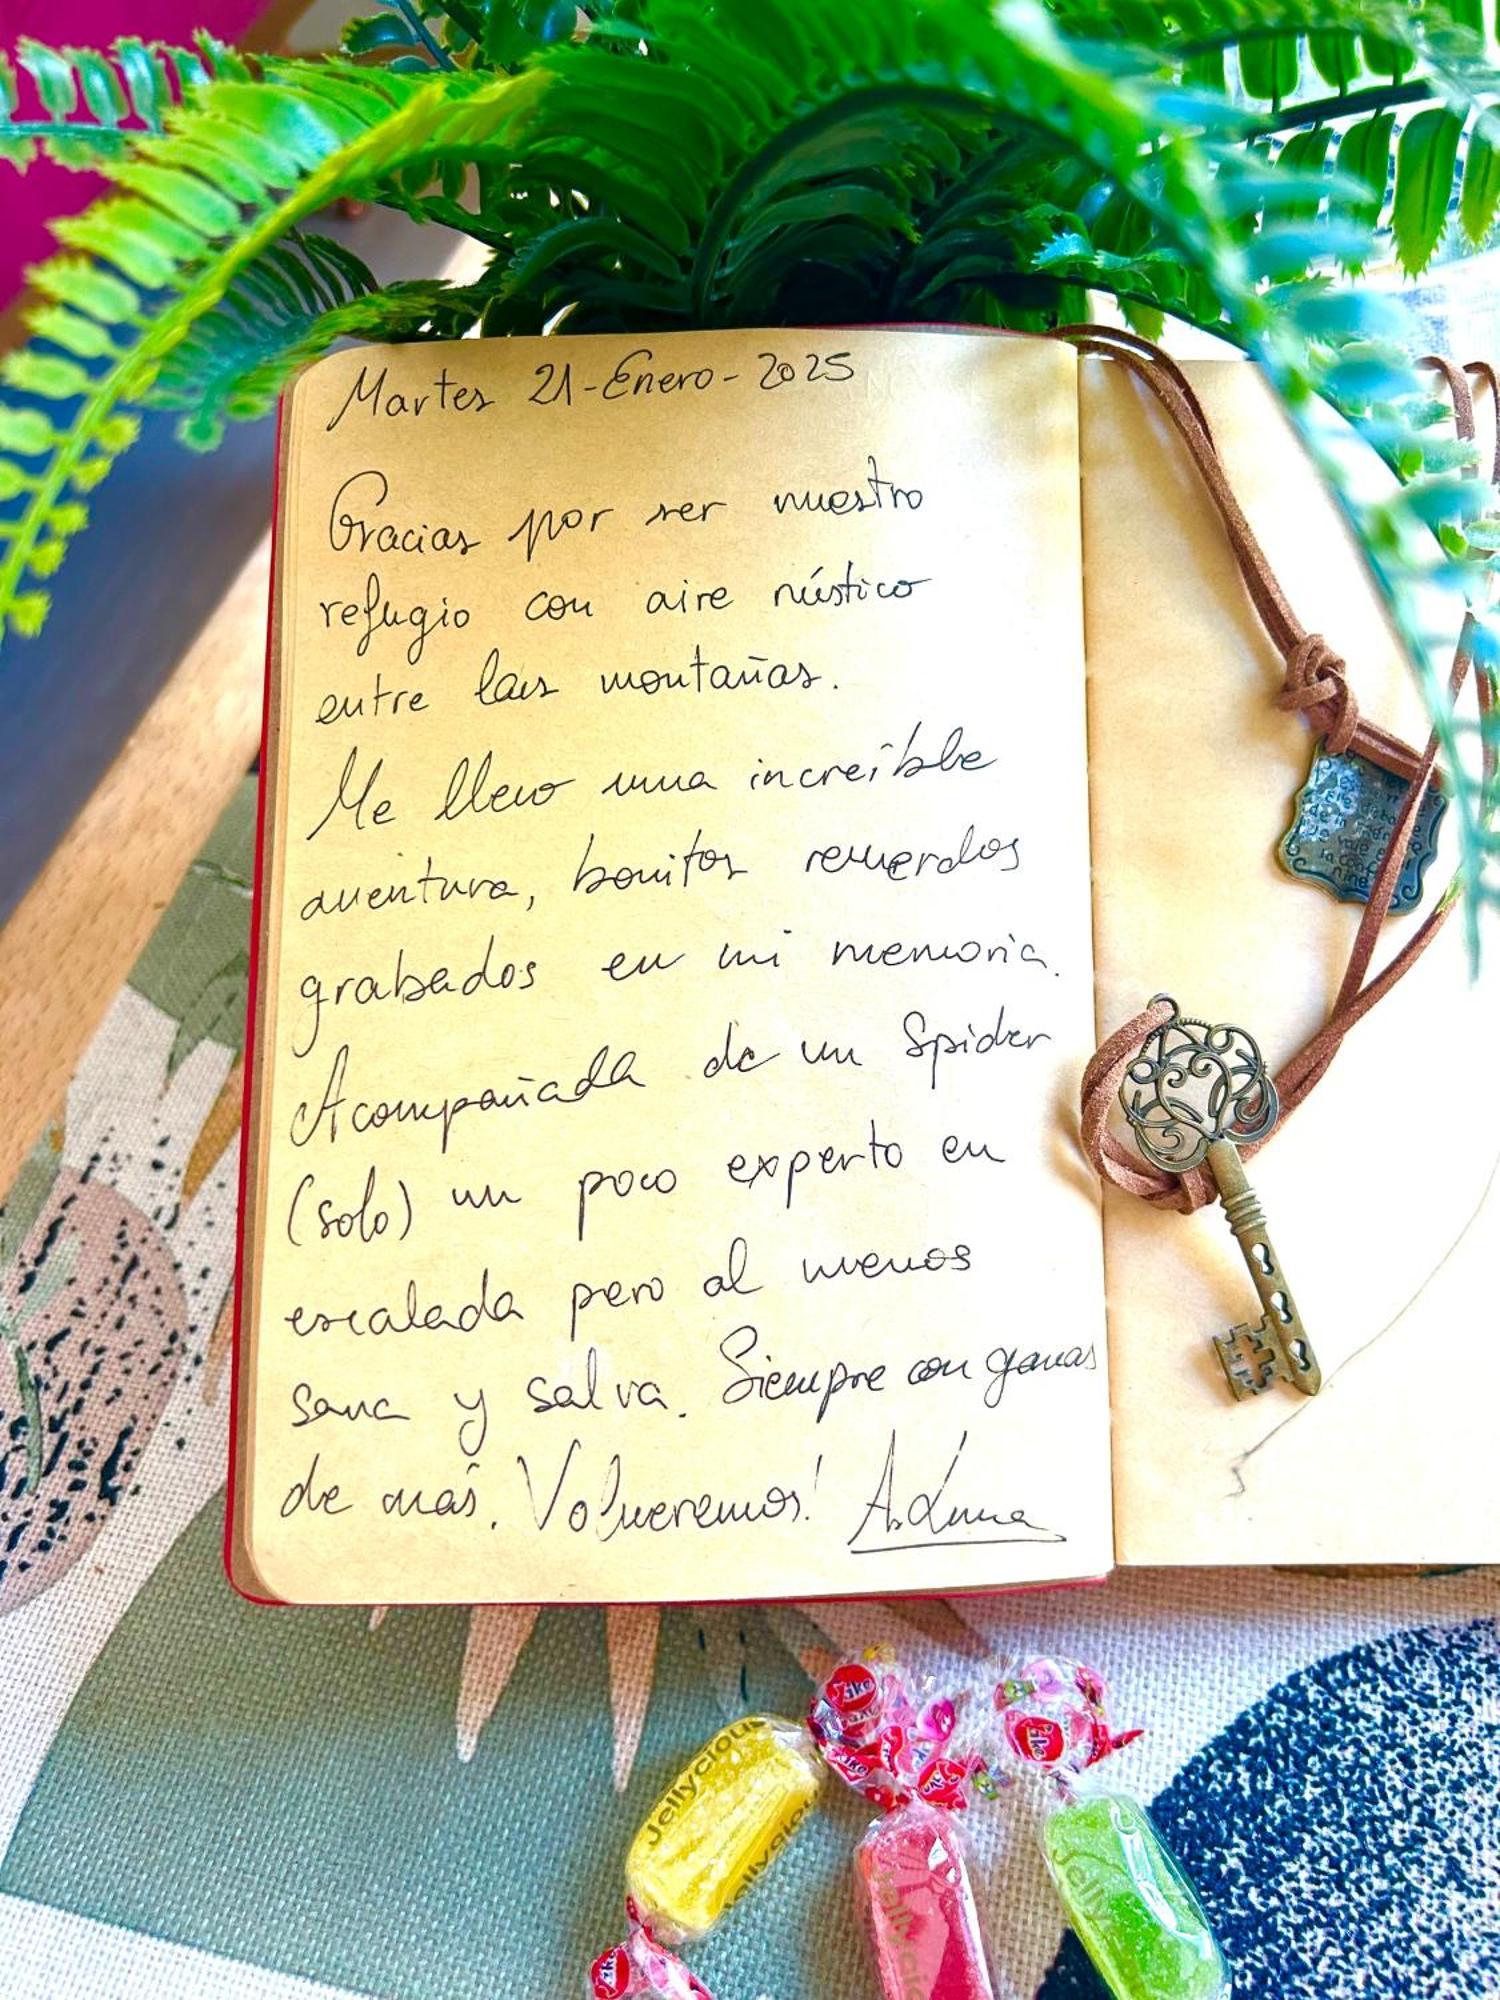 Martes 21-Enero-2025
Gracias por ser nuestro
refugio con aire rústico
entre las montañas.
Me llevo una increíble
aventura, bonitos recuerdos
grabados en mi memoria.
Acompañada de un Spider
(solo) un poco experto en
escalada pero al menos
sana y salva. Siempre con ganas
de más. Volveremos! A. Luna
Jellycious
Jellyciou
Jellycio
Jelly
Fake
Fake
Fake